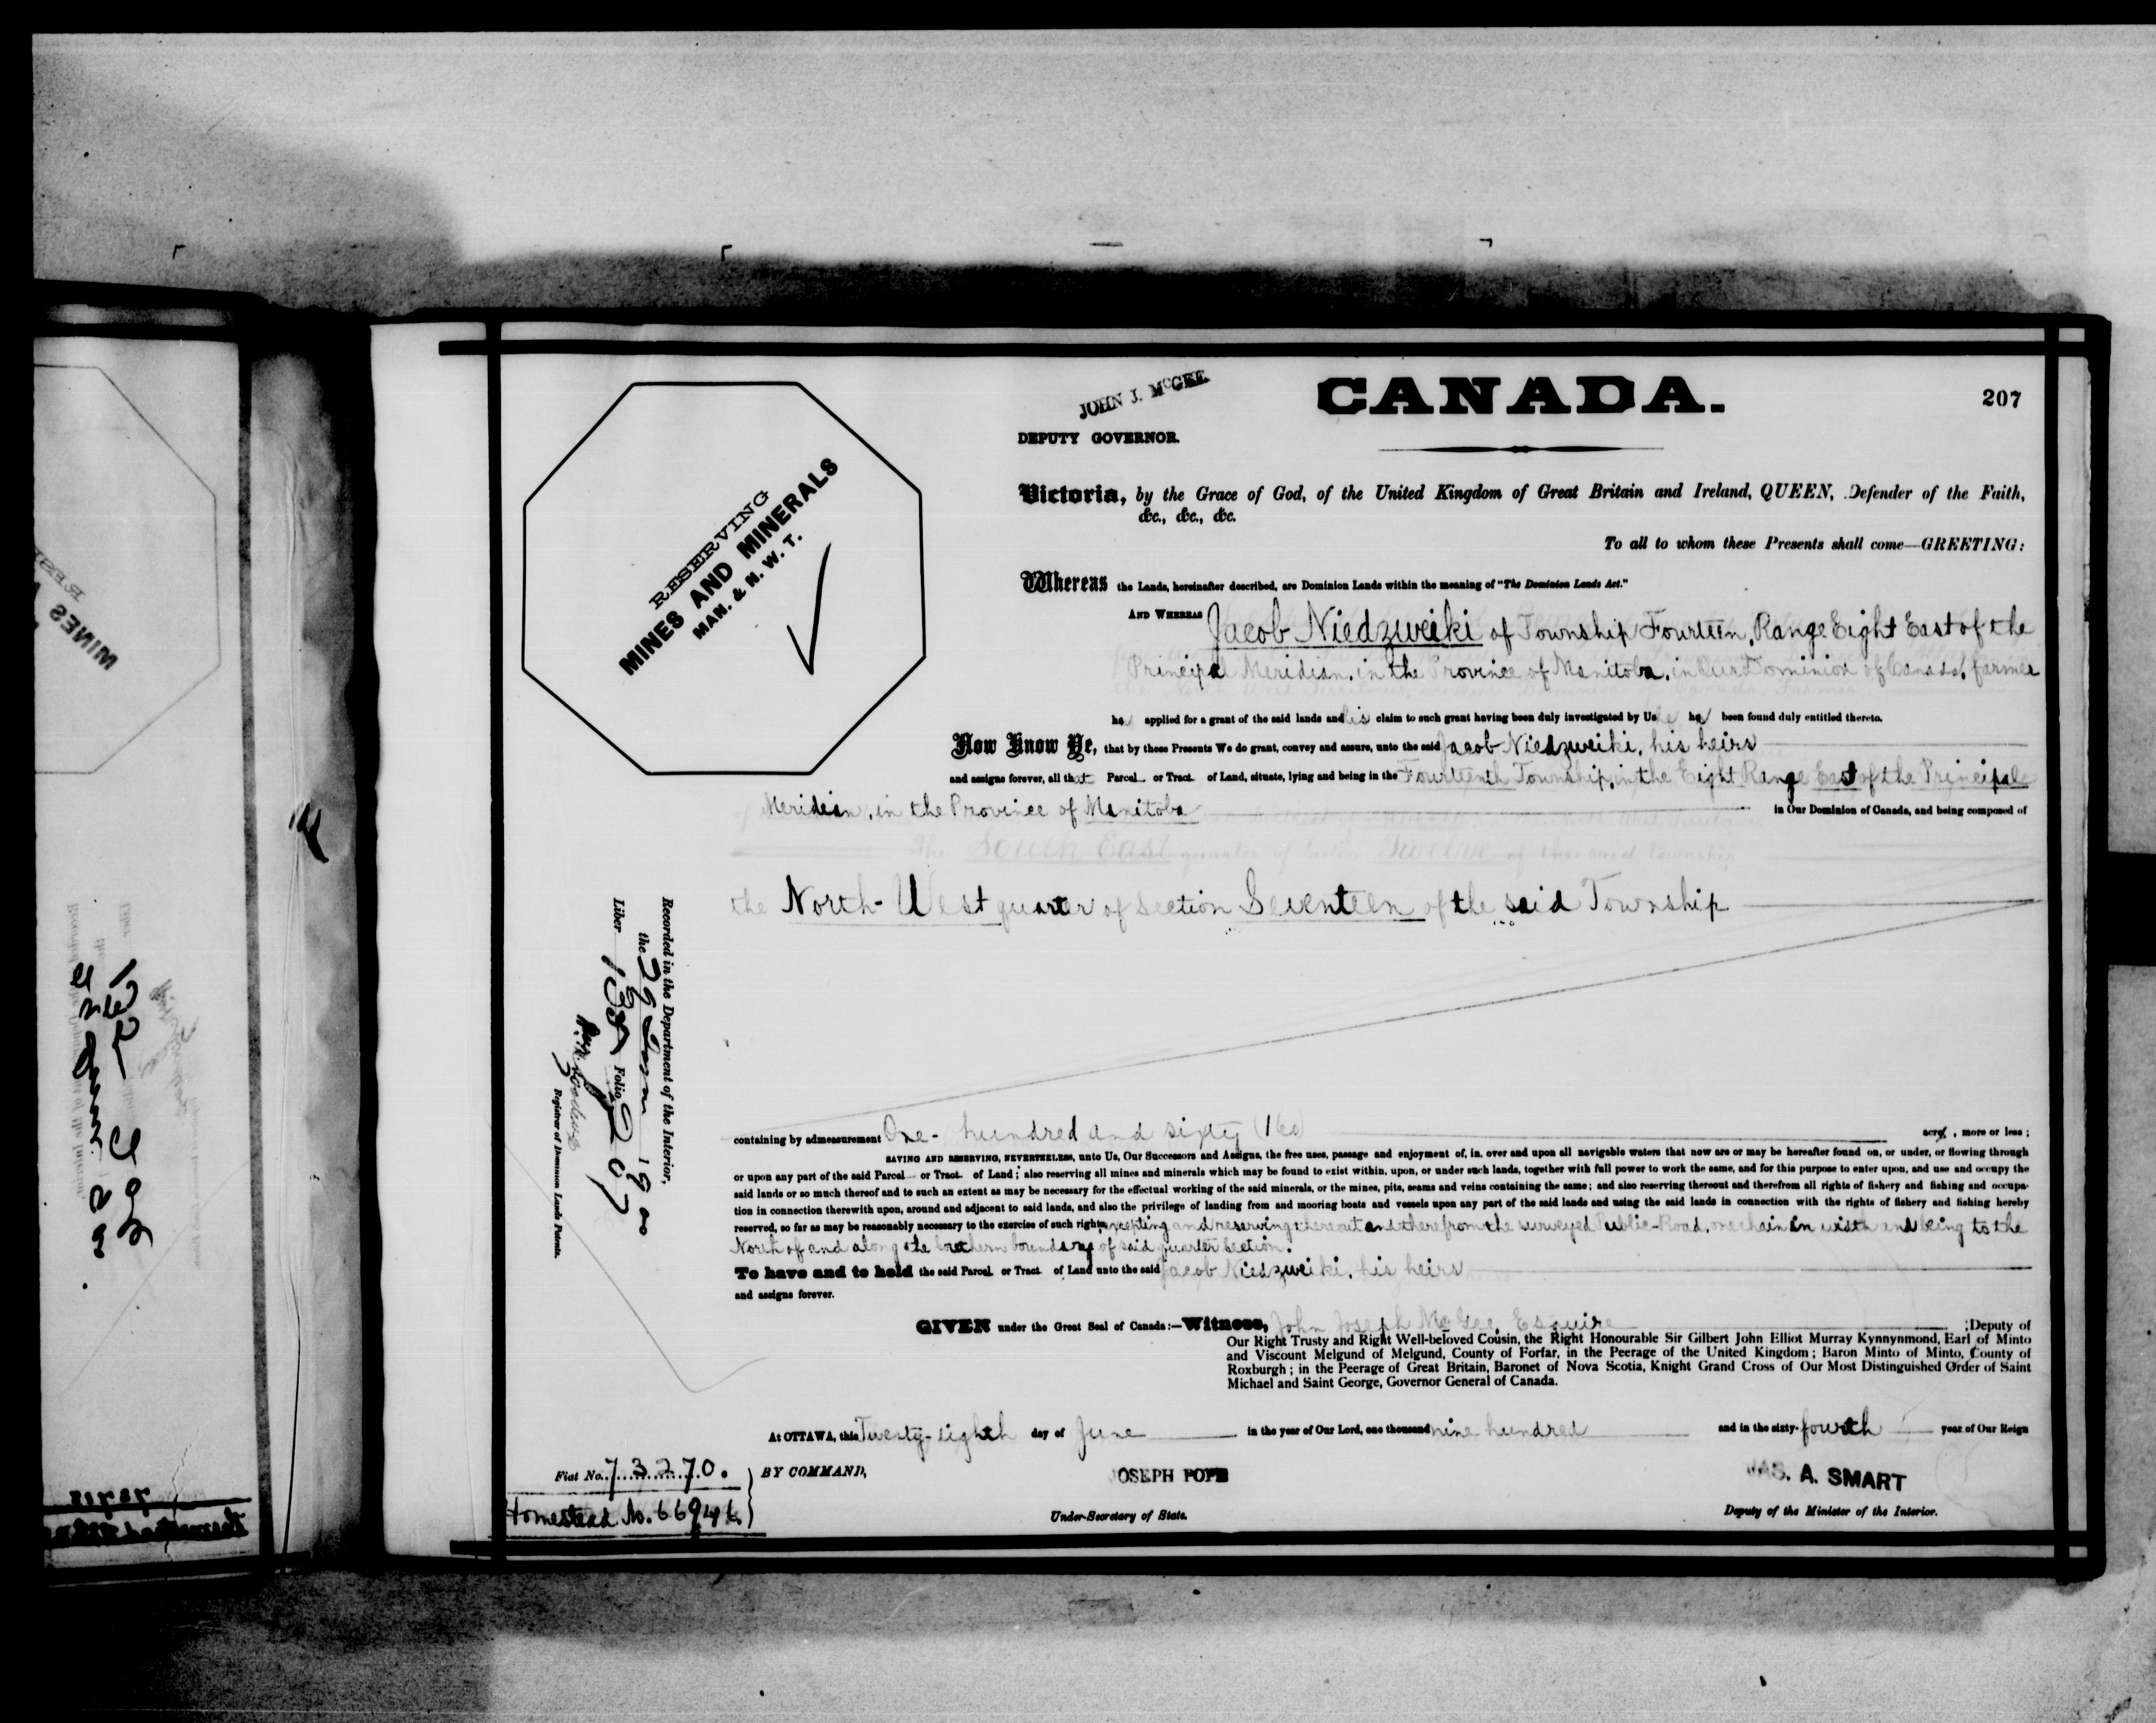 JOHN J. McGEE
CANADA.
207
DEPUTY GOVERNOR.
RESERVING
MINES AND MINERALS
MAN. & N. W. T.
Victoria, by the Grace of God, of the United Kingdom of Great Britain and Ireland, QUEEN, Defender of the Faith,
&c., &c., &c.
To all to whom these Presents shall come—GREETING:
Whereas the Lands, hereinafter described, are Dominion Lands within the meaning of "The Dominion Lands Act."
AND WHEREAS Jacob Niedzweiki of Township Fourteen, Range Eight East of the
Principal Meridian, in the Province of Manitoba, in Our Dominion of Canada, farmer
has applied for a grant of the said lands and his claim to such grant having been duly investigated by Us he has been found duly entitled thereto.
Now Know Ye, that by these Presents We do grant, convey and assure, unto the said Jacob Niedzweiki, his heirs
and assigns forever, all that Parcel or Tract of Land, situate, lying and being in the Fourteenth Township, in the Eight Range East of the Principal
Meridian, in the Province of Manitoba in Our Dominion of Canada, and being composed of
the North-West quarter of section Seventeen of the said Township
Recorded in the Department of the Interior,
the 29 June 1900
Liber 138 Folio 207
Registrar of Dominion Lands Patents.
containing by admeasurement One-hundred and sixty (160) acres, more or less;
SAVING AND RESERVING, NEVERTHELESS, unto Us, Our Successors and Assigns, the free uses, passage and enjoyment of, in, over and upon all navigable waters that now are or may be hereafter found on, or under, or flowing through
or upon any part of the said Parcel or Tract of Land; also reserving all mines and minerals which may be found to exist within, upon, or under such lands, together with full power to work the same, and for this purpose to enter upon, and use and occupy the
said lands or so much thereof and to such an extent as may be necessary for the effectual working of the said minerals, or the mines, pits, seams and veins containing the same; and also reserving thereout and therefrom all rights of fishery and fishing and occupa-
tion in connection therewith upon, around and adjacent to said lands, and also the privilege of landing from and mooring boats and vessels upon any part of the said lands and using the said lands in connection with the rights of fishery and fishing hereby
reserved, so far as may be reasonably necessary to the exercise of such rights, excepting and reserving thereout and therefrom the surveyed Public-Road, one chain in width and being to the
North of and along the southern boundary of said quarter section.
To have and to hold the said Parcel or Tract of Land unto the said Jacob Niedzweiki, his heirs
and assigns forever.
GIVEN under the Great Seal of Canada:—Witness, John Joseph McGee, Esquire ;Deputy of
Our Right Trusty and Right Well-beloved Cousin, the Right Honourable Sir Gilbert John Elliot Murray Kynnynmond, Earl of Minto
and Viscount Melgund of Melgund, County of Forfar, in the Peerage of the United Kingdom; Baron Minto of Minto, County of
Roxburgh; in the Peerage of Great Britain, Baronet of Nova Scotia, Knight Grand Cross of Our Most Distinguished Order of Saint
Michael and Saint George, Governor General of Canada.
At OTTAWA, this Twenty-eighth day of June in the year of Our Lord, one thousand nine hundred and in the sixty-fourth year of Our Reign
Fiat No. 73270.
BY COMMAND,
JOSEPH POPE
JAS. A. SMART
Homestead No. 66946.
Under-Secretary of State.
Deputy of the Minister of the Interior.